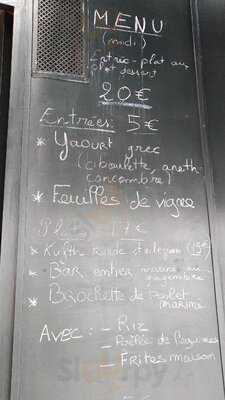 MENU
(midi)
Entrée-plat ou
plat dessert
20€
Entrées: 5€
* Yaourt grec
(ciboulette, aneth
concombre)
* Feuilles de vigne
17€
* (15€)
* Bar entier mariné au
gingembre
* Brochette de Poulet
mariné
AVEC: - Riz
- Poêlée de légumes
- Frites maison